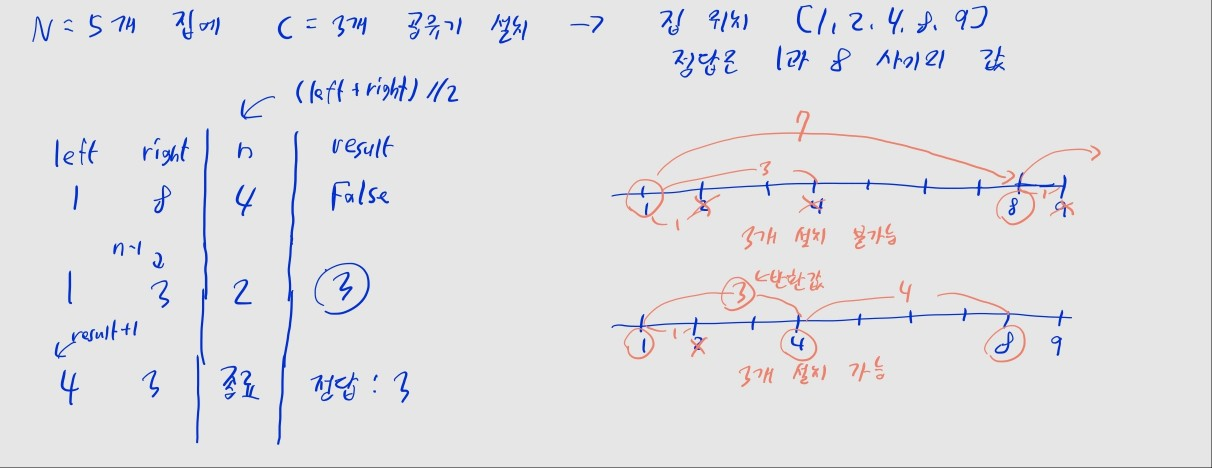 N = 5개 집에 C = 3개 공유기 설치 → 집 위치 (1, 2, 4, 8, 9)
정답은 1과 8 사이의 값
(left + right) // 2
left right n result
1 8 4 False
n-1
1 3 2 3
result+1
4 3 종료 정답 : 3
7
3
1 2 4 8 9
1 1
3개 설치 불가능
3 ←반환값 4
1
1 2 4 8 9
3개 설치 가능